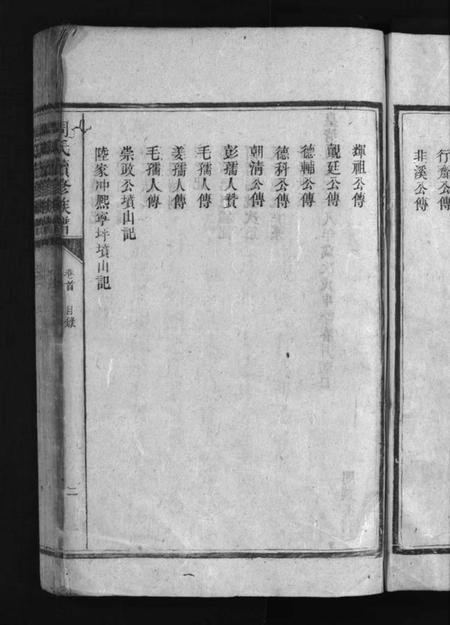 行齋公傳
非溪公傳
輝祖公傳
覲廷公傳
德輔公傳
德科公傳
朝清公傳
彭孺人贊
毛孺人傳
姜孺人傳
毛孺人傳
崇政公墳山記
陸家冲熙寧坪墳山記
周氏續修族譜
卷首 目錄
二